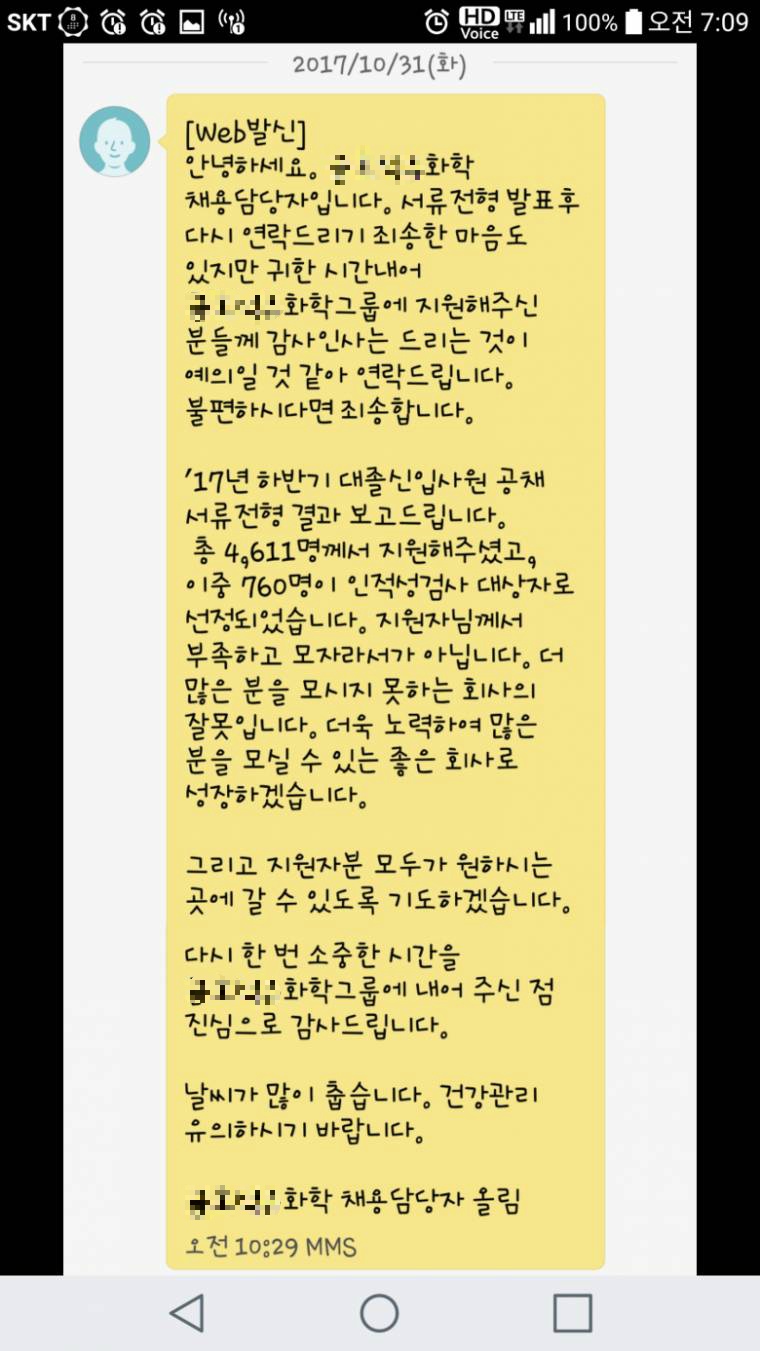 SKT 8 HD Voice LTE 100% 오전 7:09
2017/10/31(화)
[Web발신]
안녕하세요. 화학
채용담당자입니다. 서류전형 발표후
다시 연락드리기 죄송한 마음도
있지만 귀한 시간내어
화학그룹에 지원해주신
분들께 감사인사는 드리는 것이
예의일 것 같아 연락드립니다.
불편하시다면 죄송합니다.
'17년 하반기 대졸신입사원 공채
서류전형 결과 보고드립니다.
총 4,611명께서 지원해주셨고,
이중 760명이 인적성검사 대상자로
선정되었습니다. 지원자님께서
부족하고 모자라서가 아닙니다. 더
많은 분을 모시지 못하는 회사의
잘못입니다. 더욱 노력하여 많은
분을 모실 수 있는 좋은 회사로
성장하겠습니다.
그리고 지원자분 모두가 원하시는
곳에 갈 수 있도록 기도하겠습니다.
다시 한 번 소중한 시간을
화학그룹에 내어 주신 점
진심으로 감사드립니다.
날씨가 많이 춥습니다. 건강관리
유의하시기 바랍니다.
화학 채용담당자 올림
오전 10:29 MMS